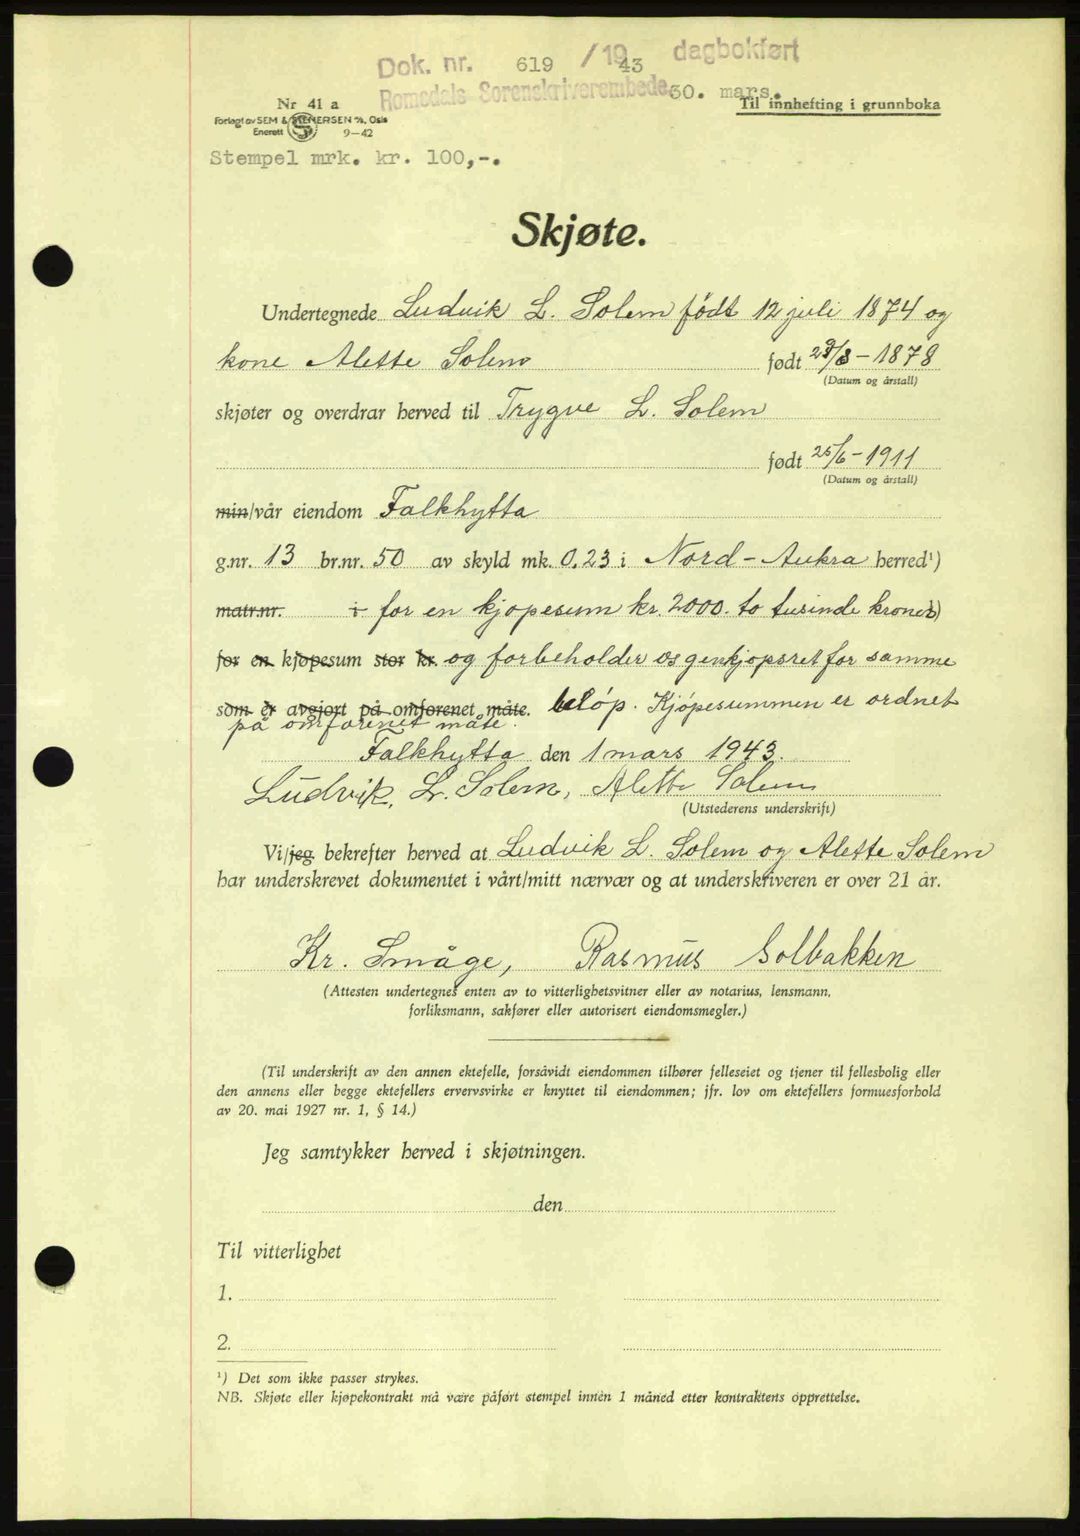 Dok. nr. 619 /19 43 dagbokført
Romsdals Sorenskriverembede 30. mars.
Nr 41 a
Til innhefting i grunnboka
Forlagt av SEM & STENERSEN A/S, Oslo
Enerett 9-42
Stempel mrk. kr. 100,-.
Skjøte.
Undertegnede Ludvik L. Solem født 12 juli 1874 og
kone Alette Solem født 29/8-1878
(Datum og årstall)
skjøter og overdrar herved til Trygve L. Solem
født 25/6-1911
(Datum og årstall)
min/vår eiendom Falkhytta
g.nr. 13 br.nr. 50 av skyld mk. 0.23 i Nord-Aukra herred¹)
matr.nr. i for en kjøpesum kr. 2000. to tusinde kroner)
for en kjøpesum stor kr. og forbeholder os genkjøpsret for samme
som er avgjort på omforenet måte. beløp. Kjøpesummen er ordnet
på omforenet måte.
Falkhytta den 1 mars 1943.
Ludvik, L. Solem, Alette Solem
(Utstederens underskrift)
Vi/jeg bekrefter herved at Ludvik L. Solem og Alette Solem
har underskrevet dokumentet i vårt/mitt nærvær og at underskriveren er over 21 år.
Kr. Småge, Rasmus Solbakken
(Attesten undertegnes enten av to vitterlighetsvitner eller av notarius, lensmann,
forliksmann, sakfører eller autorisert eiendomsmegler.)
(Til underskrift av den annen ektefelle, forsåvidt eiendommen tilhører felleseiet og tjener til fellesbolig eller
den annens eller begge ektefellers ervervsvirke er knyttet til eiendommen; jfr. lov om ektefellers formuesforhold
av 20. mai 1927 nr. 1, § 14.)
Jeg samtykker herved i skjøtningen.
den
Til vitterlighet
1.
2.
¹) Det som ikke passer strykes.
NB. Skjøte eller kjøpekontrakt må være påført stempel innen 1 måned etter kontraktens opprettelse.